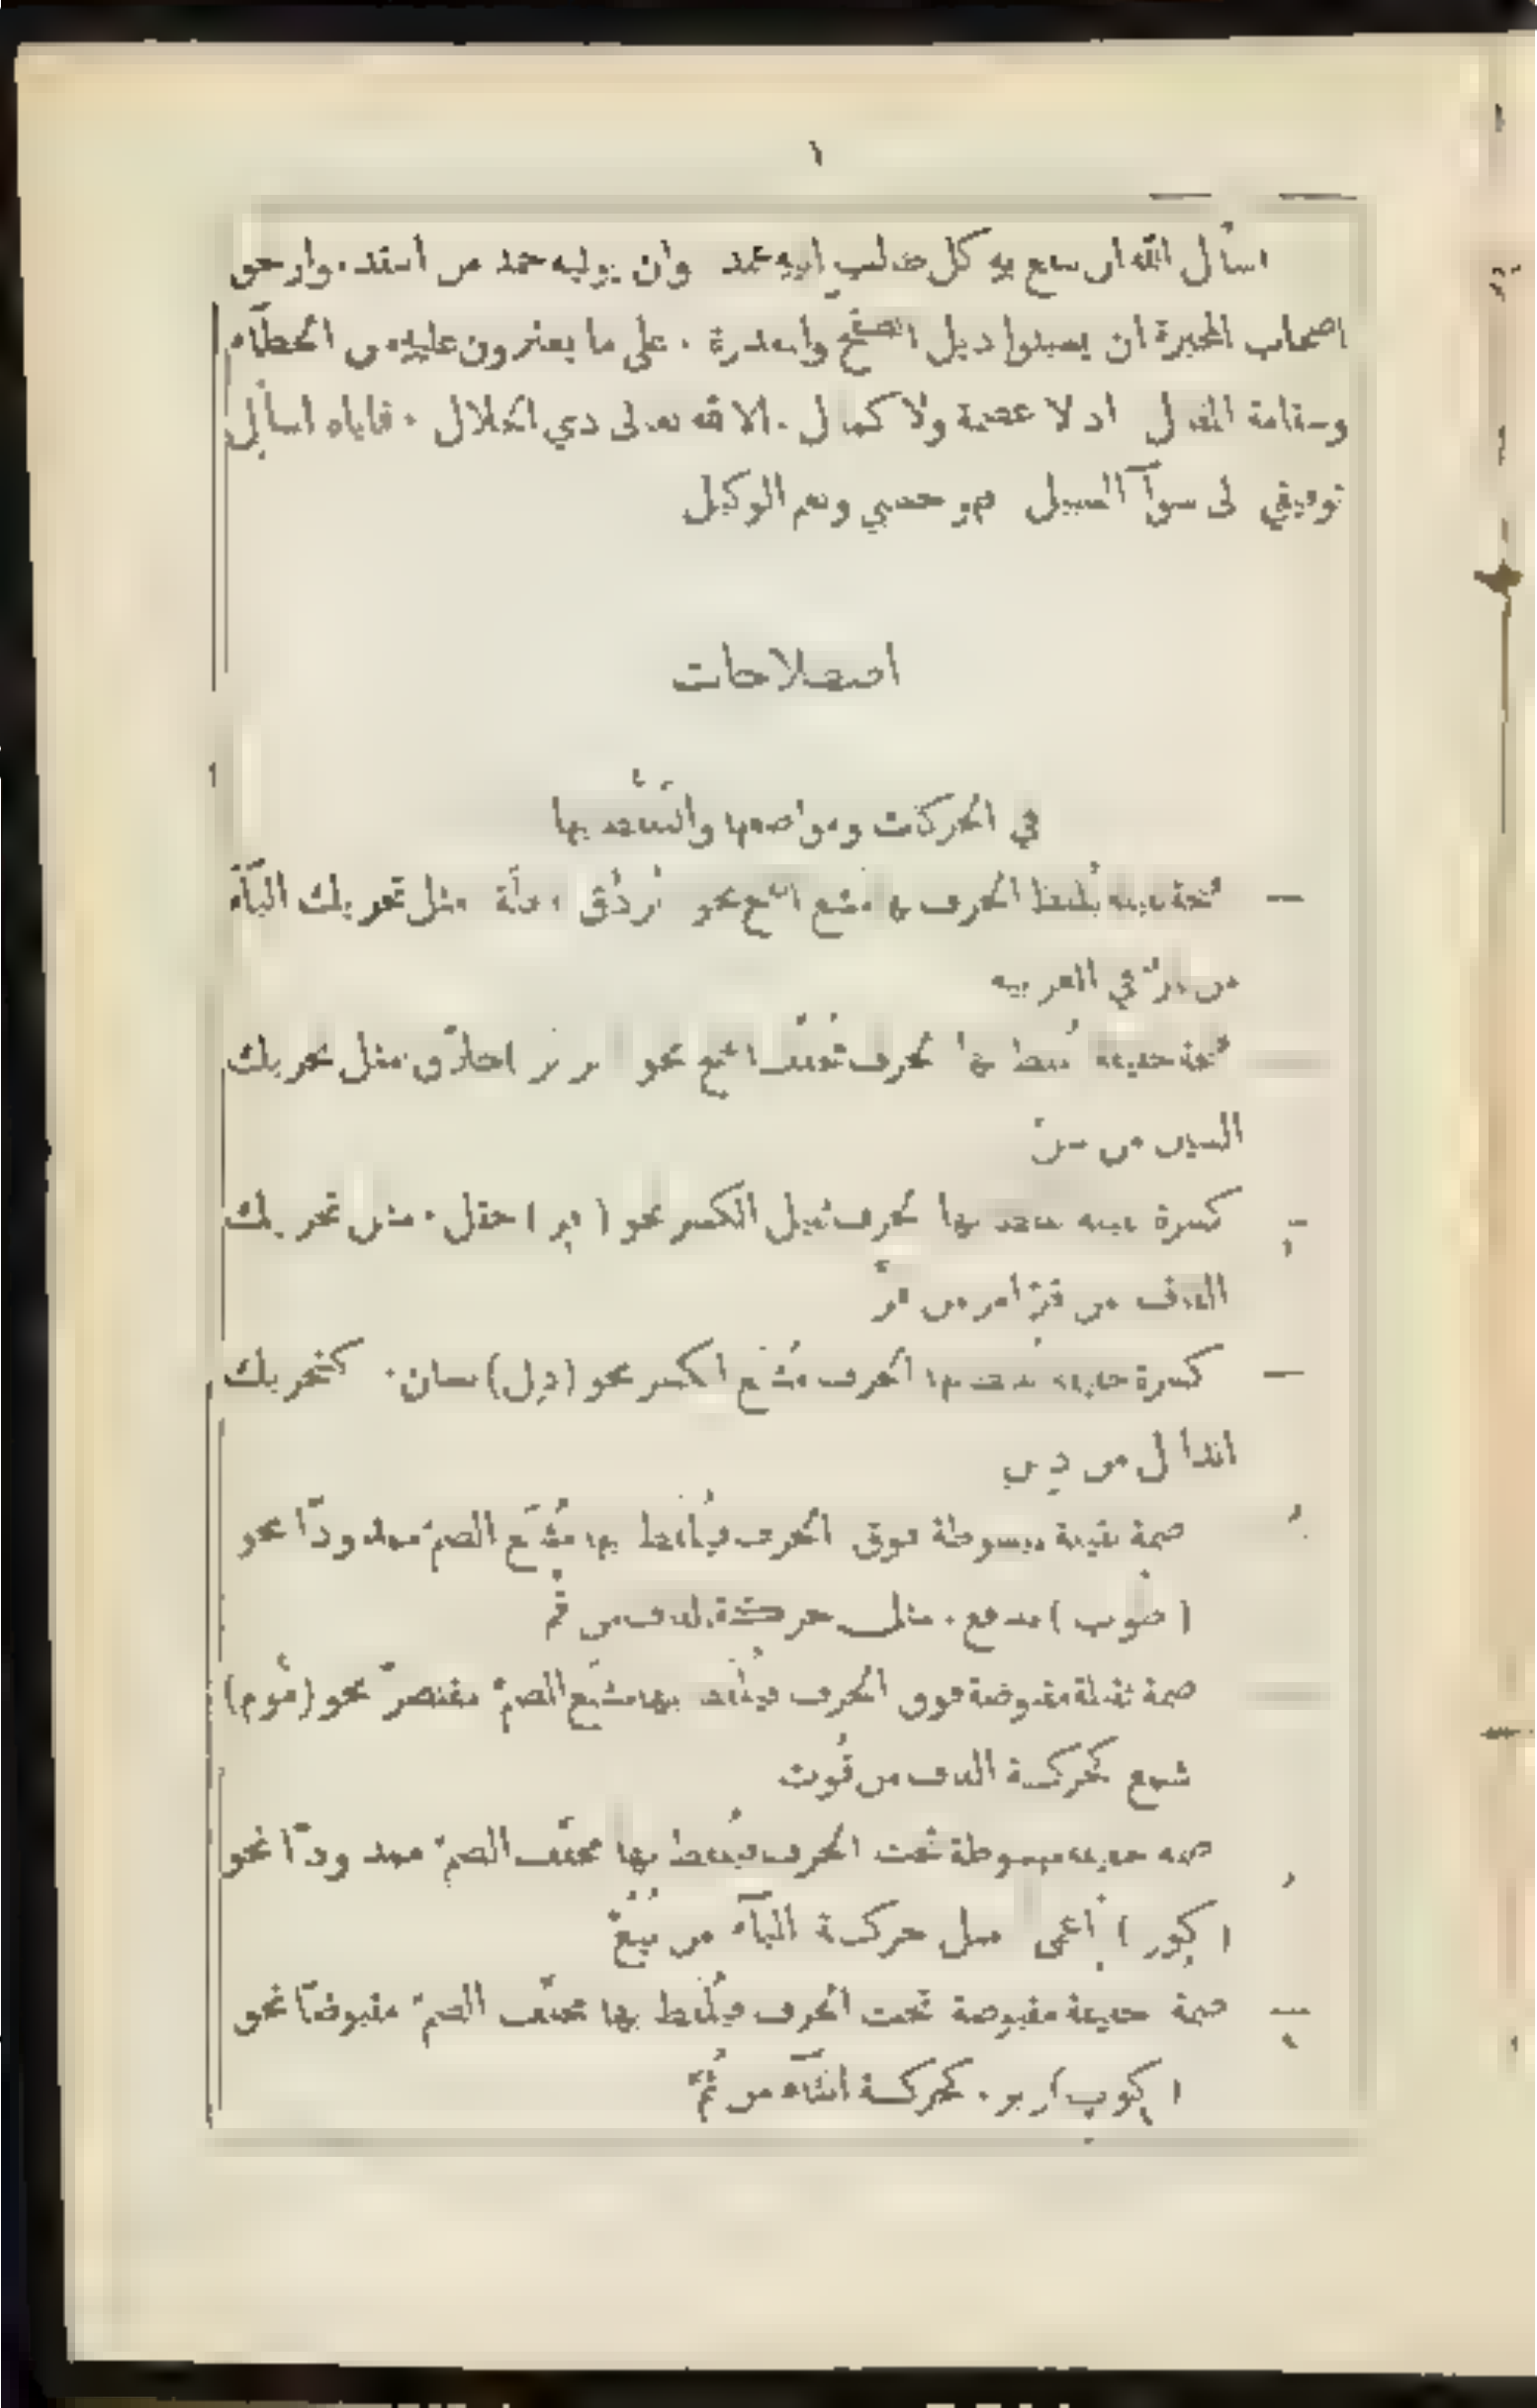 اسأل الله ان ينفع به كل طالب اليه عمد وان يوليه حمد من استند. وارجو
اصحاب الخبرة ان يسبلوا ذيل الصفح والمعذرة. على ما يعثرون عليه من الخطآء
وسقامة المقال اذ لا عصمة ولا كمال. الا لله تعالى ذي الجلال. فاياه اسأل
توفيقي الى سوآ السبيل فهو حسبي ونعم الوكيل
اصطلاحات
في الحركات ومواضعها والتلفّظ بها
فتحة ثقيلة يُلفظ الحرف بها مشبع الفتح نحو مثل تحريك البآء
من في العربية
فتحة خفيفة يُلفظ بها الحرف مخفّف الفتح نحو احلاق مثل تحريك
السين من سن
كسرة ثقيلة يلفظ بها الحرف ثقيل الكسر نحو ( بر ) حقل. مثل تحريك
القاف من قرّ امر من قرّ
كسرة خفيفة يلفظ بها الحرف مشبع الكسر نحو (دِل) لسان. كتحريك
الدال من دِين
ضمة ثقيلة مبسوطة فوق الحرف فيُلفظ بها مُشبَع الضمّ ممدودًا نحو
( طوب ) مدفع. مثل حركة القاف من قُم
ضمة ثقيلة مقبوضة فوق الحرف فيُلفظ بها مشبَع الضمّ مقتصرًا نحو (مُوم)
شمع كحركة القاف من قُوت
ضمة خفيفة مبسوطة تحت الحرف فيُلفظ بها مخفّف الضمّ ممدودًا نحو
( كور ) اعمى مثل حركة البآء من
ضمة خفيفة مقبوضة تحت الحرف فيُلفظ بها مخفّف الضمّ مقبوضًا نحو
( كوپ ) زير. كحركة الثآء من ثُمّ